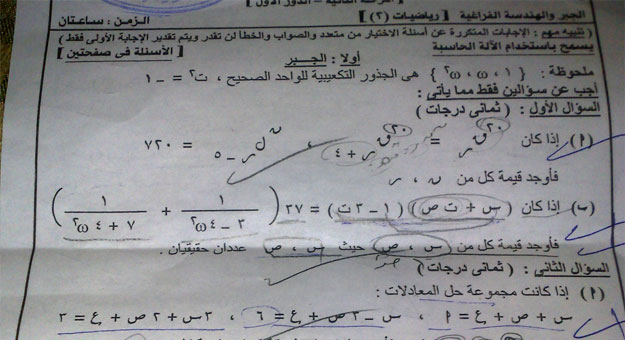 المرحلة الثانية – الدور الأول
الجبر والهندسة الفراغية [ رياضيات (٢) ] الزمن : ساعتان
( تنبيه مهم : الإجابات المتكررة عن أسئلة الاختيار من متعدد والصواب والخطأ لن تقدر ويتم تقدير الإجابة الأولى فقط )
يسمح باستخدام الآلة الحاسبة [ الأسئلة فى صفحتين ]
أولا : الجبر
ملحوظة : { ١ ، ω ، ω٢ } هى الجذور التكعيبية للواحد الصحيح ، ت٢ = – ١
أجب عن سؤالين فقط مما يأتى :
السؤال الأول : ( ثمانى درجات )
(أ) إذا كان ٢٠ق ر = ٢٠ق ر + ٤ ، ن ل ر – ٥ = ٧٢٠
فأوجد قيمة كل من ن ، ر
(ب) إذا كان (س + ت ص) (١ – ٣ت) = ٢٧ (١/(٣ – ٤ω) + ١/(٧ + ٤ω٢))
فأوجد قيمة كل من س ، ص حيث س ، ص عددان حقيقيان .
السؤال الثانى : ( ثمانى درجات )
(أ) إذا كانت مجموعة حل المعادلات :
س + ص + ع = م ، س – ٣ص + ع = ٦ ، ٣س + ٢ص + ع = ٣